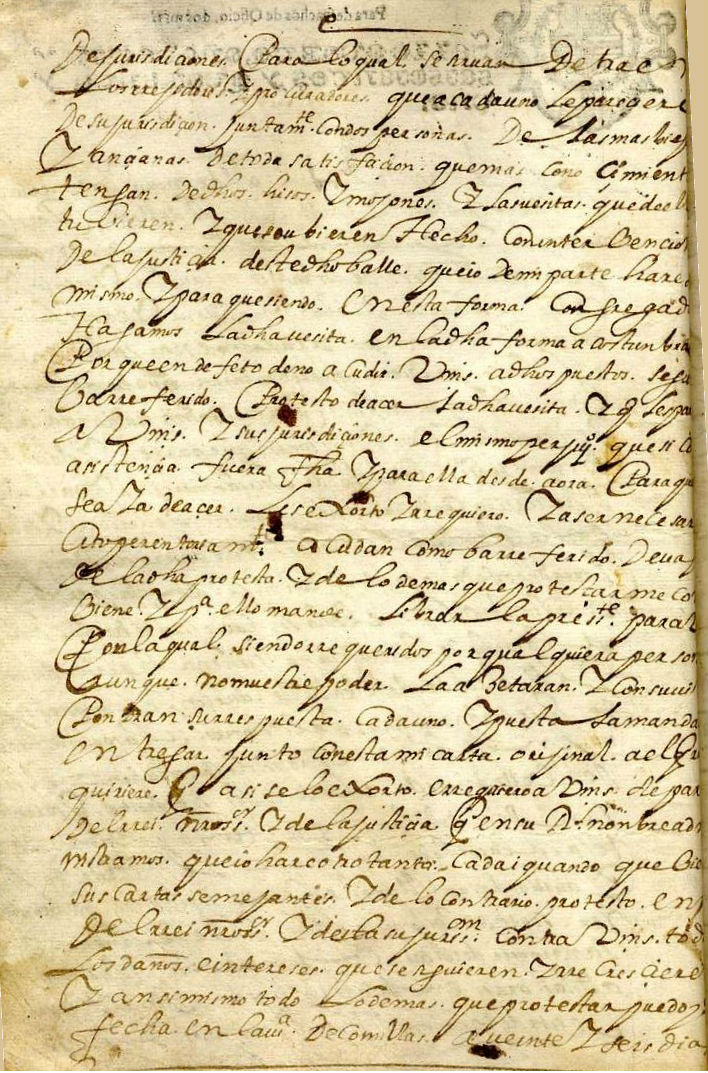 Para despachos de Oficio, dos mrs
de jurisdiciones. Para lo qual se siruan de trae
Los rrejidores. Y procuradores. que a cada uno le pareciere
de su jurisdicion. juntamte. con dos personas. De las mas biej
Y ancianas. de toda satisfacion. que mas conocimient
tengan. de dhos. hisos. Y mojones. Y las uesitas. que de el
tubieren. Y que se ubieren Hecho. con interbencion
De la justicia. deste dho balle. que io de mi parte hare
mismo. Y para que siendo. en esta forma. congregad
Hagamos La dha uesita. en la dha forma acostunbra
Por que en defeto de no acudir. Vms. a dhos puestos. segu
ba rreferido. Protesto de acer la dha uesita. Y q les par
a Vms. Y sus jurisdiciones. el mismo perjuo. que si co
asistencia. fuera fha Y para ella desde aora. Para que
sea Ya de acer. Les exorto Y rrequiero. Y a ser necesar
Cito perentoriamte. acudan como ba rreferido. Deua
de la dha protesta. Y de lo demas que protestar me co
biene Y pa. ello mande. Librar la preste. para
Por la qual. siendo rrequeridos por qualquiera person
aunque. no muestre poder. La azetaran. Y con su uis
Pondran su rrespuesta. cada uno. Y puesta La manda
entregar junto con esta mi carta. orijinal. a el q
quiriere. q asi se lo exorto. e rrequiero a Vms. de par
del rrei. nro sr. Y de la justicia q en su Rl. nonbre ad
nistramos. que io hare otro tanto. Cada i quando que
sus cartas semejantes. Y de lo contrario. protesto. en
del rrei nro sr. Y desta su jurison. contra Vms. to
Los daños. e intereses. que se siguieren. Y rrecreciere
Y ansimismo todo Lo demas. que protestar puedo
fecha en la ua. De Comillas. a veinte Y seis dia